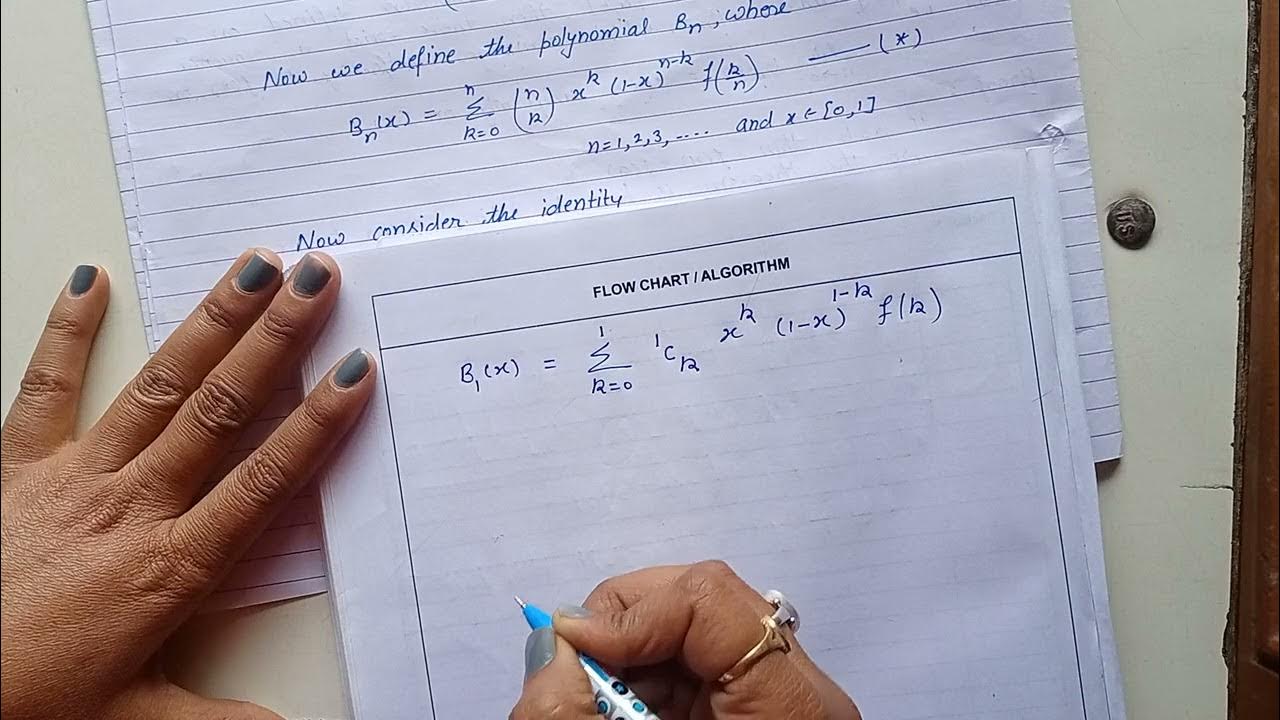 Now we define the polynomial Bn, where
Bn(x) = Σ_{k=0}^{n} (n k) x^k (1-x)^{n-k} f(k/n) —— (*)
n=1,2,3,.... and x ∈ [0,1]
Now consider the identity
FLOW CHART / ALGORITHM
B₁(x) = Σ_{k=0}^{1} ¹C_k x^k (1-x)^{1-k} f(k)